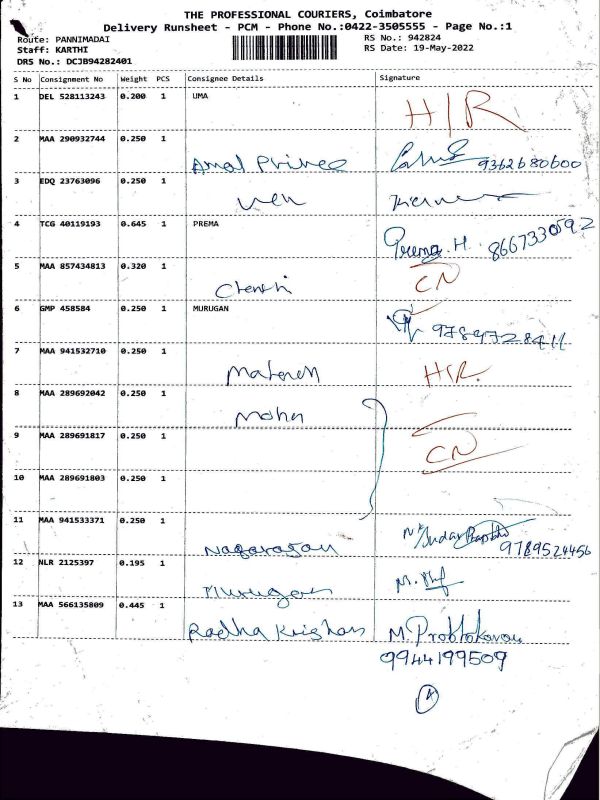 THE PROFESSIONAL COURIERS, Coimbatore
Delivery Runsheet - PCM - Phone No.:0422-3505555 - Page No.:1
Route: PANNIMADAI
RS No.: 942824
Staff: KARTHI
RS Date: 19-May-2022
DRS No.: DCJB94282401
S No Consignment No Weight PCS Consignee Details Signature
1 DEL 528113243 0.200 1 UMA H/R
2 MAA 290932744 0.250 1
Amal Prince 9362680600
3 EDQ 23763096 0.250 1
4 TCG 40119193 0.645 1 PREMA
Prema. H. 8667330592
5 MAA 857434813 0.320 1 CN
6 GMP 458584 0.250 1 MURUGAN
9789728411
7 MAA 941532710 0.250 1
H/R.
8 MAA 289692042 0.250 1
Mohan
9 MAA 289691817 0.250 1 CN
10 MAA 289691803 0.250 1
11 MAA 941533371 0.250 1
Nagarajan 9789524456
12 NLR 2125397 0.195 1
Murugan
13 MAA 566135809 0.445 1
Radha Krishnan M. Prabhakaran
9944199509
A